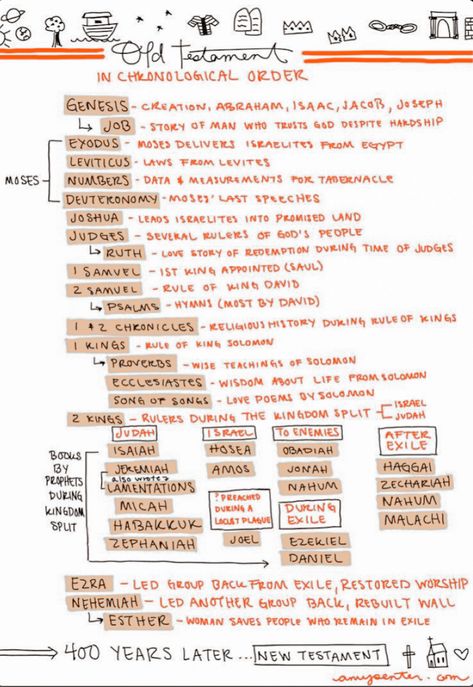 Old Testament
IN CHRONOLOGICAL ORDER
GENESIS - CREATION, ABRAHAM, ISAAC, JACOB, JOSEPH
JOB - STORY OF MAN WHO TRUSTS GOD DESPITE HARDSHIP
EXODUS - MOSES DELIVERS ISRAELITES FROM EGYPT
LEVITICUS - LAWS FROM LEVITES
MOSES
NUMBERS - DATA & MEASUREMENTS FOR TABERNACLE
DEUTERONOMY - MOSES' LAST SPEECHES
JOSHUA - LEADS ISRAELITES INTO PROMISED LAND
JUDGES - SEVERAL RULERS OF GOD'S PEOPLE
RUTH - LOVE STORY OF REDEMPTION DURING TIME OF JUDGES
1 SAMUEL - 1ST KING APPOINTED (SAUL)
2 SAMUEL - RULE OF KING DAVID
PSALMS - HYMNS (MOST BY DAVID)
1 & 2 CHRONICLES - RELIGIOUS HISTORY DURING RULE OF KINGS
1 KINGS - RULE OF KING SOLOMON
PROVERBS - WISE TEACHINGS OF SOLOMON
ECCLESIASTES - WISDOM ABOUT LIFE FROM SOLOMON
SONG OF SONGS - LOVE POEMS BY SOLOMON
2 KINGS - RULERS DURING THE KINGDOM SPLIT - ISRAEL
JUDAH
BOOKS
BY
PROPHETS
DURING
KINGDOM
SPLIT
JUDAH
ISAIAH
JEREMIAH
also wrote
LAMENTATIONS
MICAH
HABAKKUK
ZEPHANIAH
ISRAEL
HOSEA
AMOS
? PREACHED
DURING A
LOCUST PLAGUE
JOEL
TO ENEMIES
OBADIAH
JONAH
NAHUM
DURING
EXILE
EZEKIEL
DANIEL
AFTER
EXILE
HAGGAI
ZECHARIAH
NAHUM
MALACHI
EZRA - LED GROUP BACK FROM EXILE, RESTORED WORSHIP
NEHEMIAH - LED ANOTHER GROUP BACK, REBUILT WALL
ESTHER - WOMAN SAVES PEOPLE WHO REMAIN IN EXILE
400 YEARS LATER... NEW TESTAMENT
amysenter.com